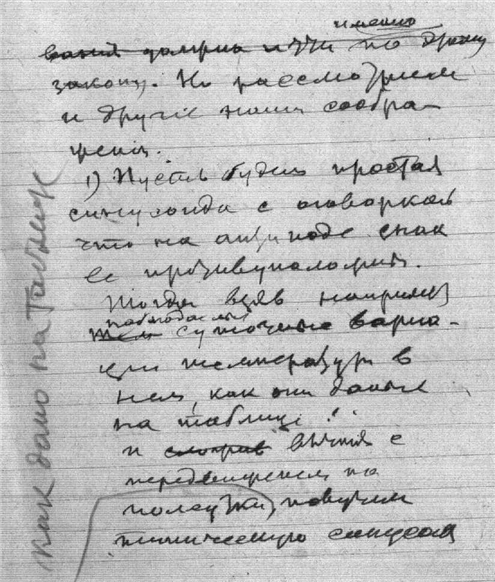 именно
вания должна идти по этому
закону. Но рассмотрим
и другие наши сообра-
жения.
1) Пусть будет простая
синусоида с оговоркой
что на антиподе знак
ее противуположит.
Тогда взяв например
наблюдаемые
суточные вариа-
ции температуры в
нем, как они даны
на таблице!
и вычтя с
передвижением на
полсутки, получим
типическую синусоиду
как дано на таблице